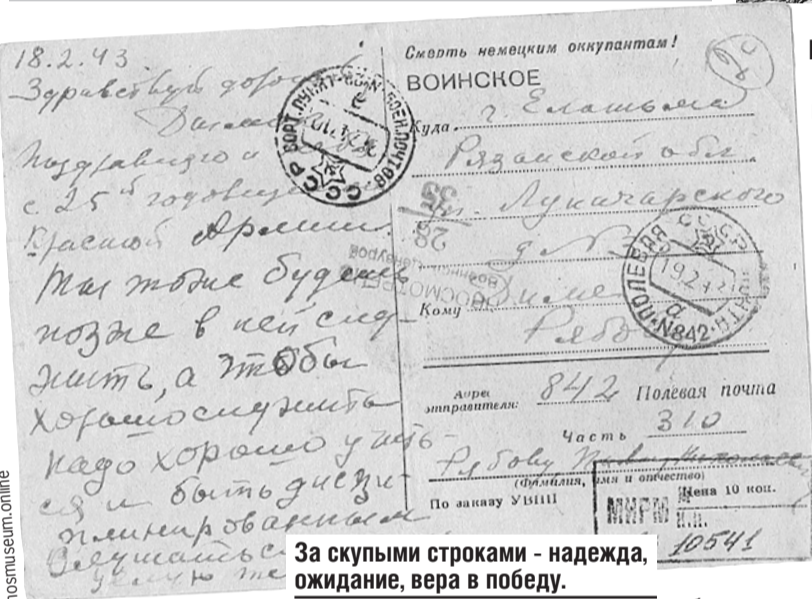 18.2.43.
Здравствуй
Поздравляю
с 25й
Красной Армии.
Ты тоже будешь
позже в ней слу-
жить, а чтобы
хорошо служить
надо хорошо учить-
ся и быть дисци-
плинированным
Слушаться
целую
Смерть немецким оккупантам!
ВОИНСКОЕ
Куда г. Елатьма
Рязанской обл
ул. Луначарского
д №
Кому
Рябо
Адрес отправителя: 842 Полевая почта
Часть 310
Рябову
(Фамилия, имя и отчество)
По заказу УВПП
Цена 10 коп.
СССР СОРТ. ПУНКТ
ПРОСМОТРЕНО
Военной Цензурой
ПОЛЕВАЯ ПОЧТА № 842
СССР
19.2.43
МИРМ
10541
За скупыми строками - надежда,
ожидание, вера в победу.
nosmuseum.online